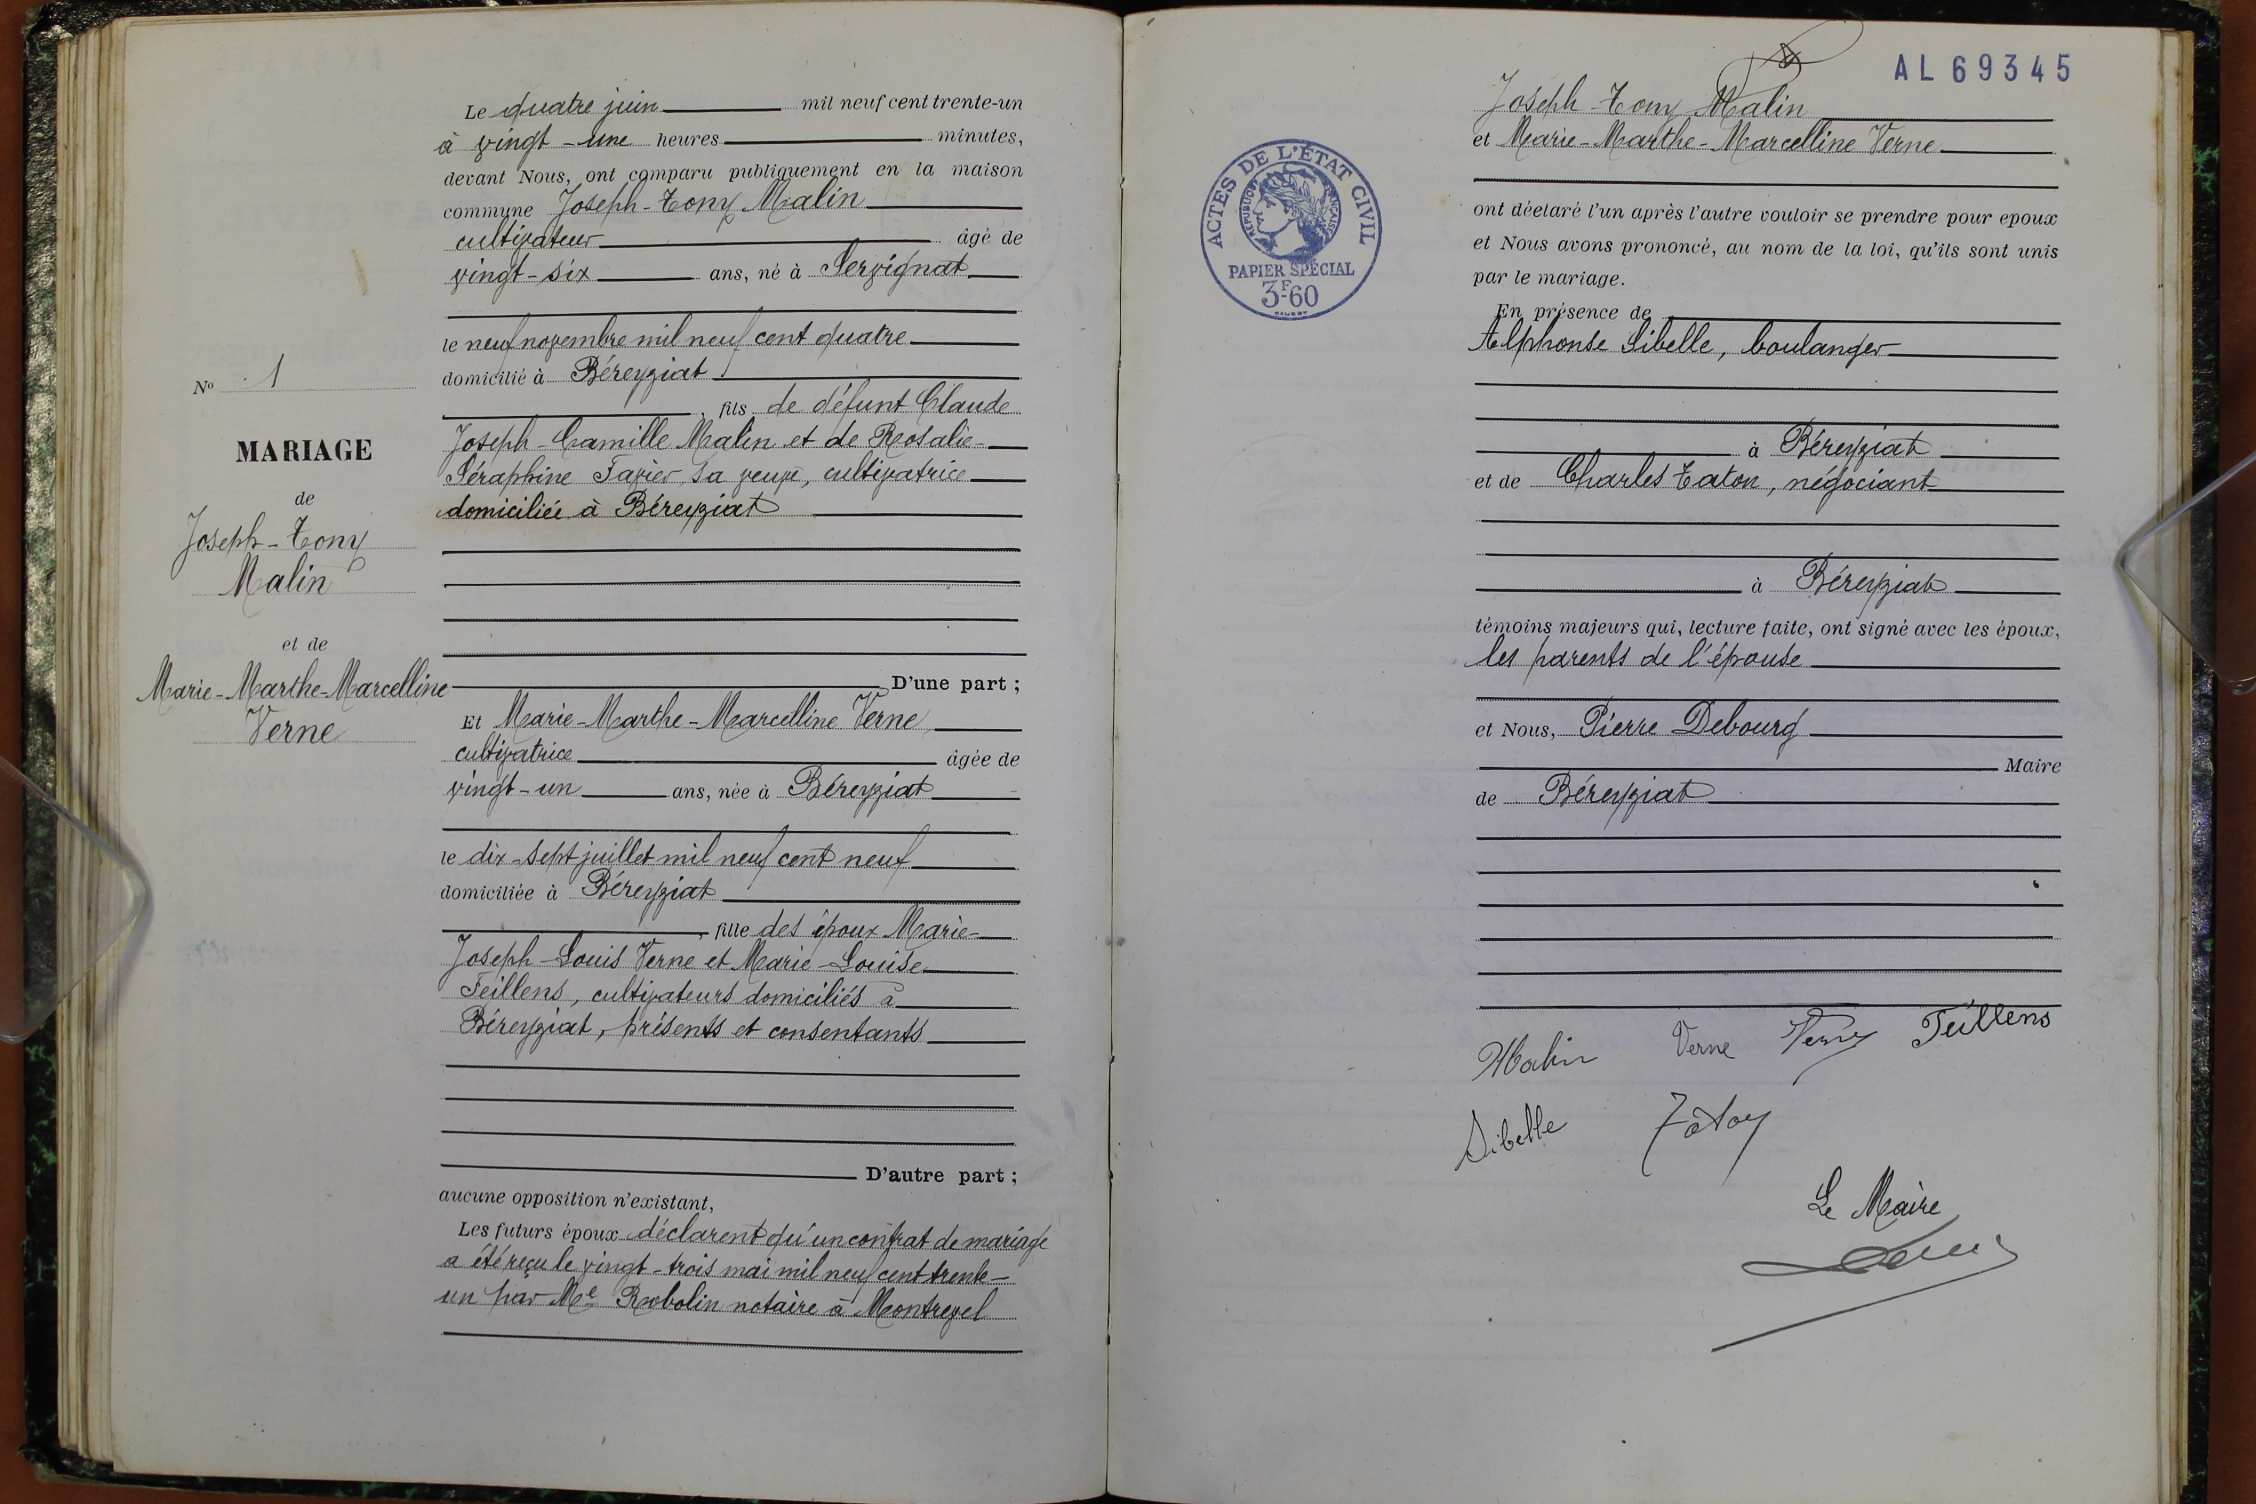 Le quatre juin mil neuf cent trente-un
à vingt-une heures minutes,
devant Nous, ont comparu publiquement en la maison
commune Joseph-Tony Malin
cultivateur âgé de
vingt-six ans, né à Servignat
le neuf novembre mil neuf cent quatre
domicilié à Béreyziat
, fils de défunt Claude
Joseph-Camille Malin et de Rosalie-
Séraphine Favier, sa veuve, cultivatrice
domiciliée à Béreyziat
D'une part ;
Et Marie-Marthe-Marcelline Verne
cultivatrice âgée de
vingt-un ans, née à Béreyziat
le dix-sept juillet mil neuf cent neuf
domiciliée à Béreyziat
, fille des époux Marie-
Joseph-Louis Verne et Marie-Louise
Feillens, cultivateurs domiciliés à
Béreyziat, présents et consentants
D'autre part ;
aucune opposition n'existant,
Les futurs époux déclarent qu'un contrat de mariage
a été reçu le vingt-trois mai mil neuf cent trente-
un par Me Robolin notaire à Montrevel
No 1
MARIAGE
de
Joseph-Tony
Malin
et de
Marie-Marthe-Marcelline
Verne
AL 69345
ACTES DE L'ÉTAT CIVIL
RÉPUBLIQUE FRANÇAISE
PAPIER SPÉCIAL
3F60
Joseph-Tony Malin
et Marie-Marthe-Marcelline Verne
ont déclaré l'un après l'autre vouloir se prendre pour époux
et Nous avons prononcé, au nom de la loi, qu'ils sont unis
par le mariage.
En présence de
Alphonse Sibelle, boulanger
à Béreyziat
et de Charles Taton, négociant
à Béreyziat
témoins majeurs qui, lecture faite, ont signé avec les époux,
les parents de l'épouse
et Nous, Pierre Debourg
Maire
de Béreyziat
Malin Verne Verne Feillens
Sibelle Taton
Le Maire